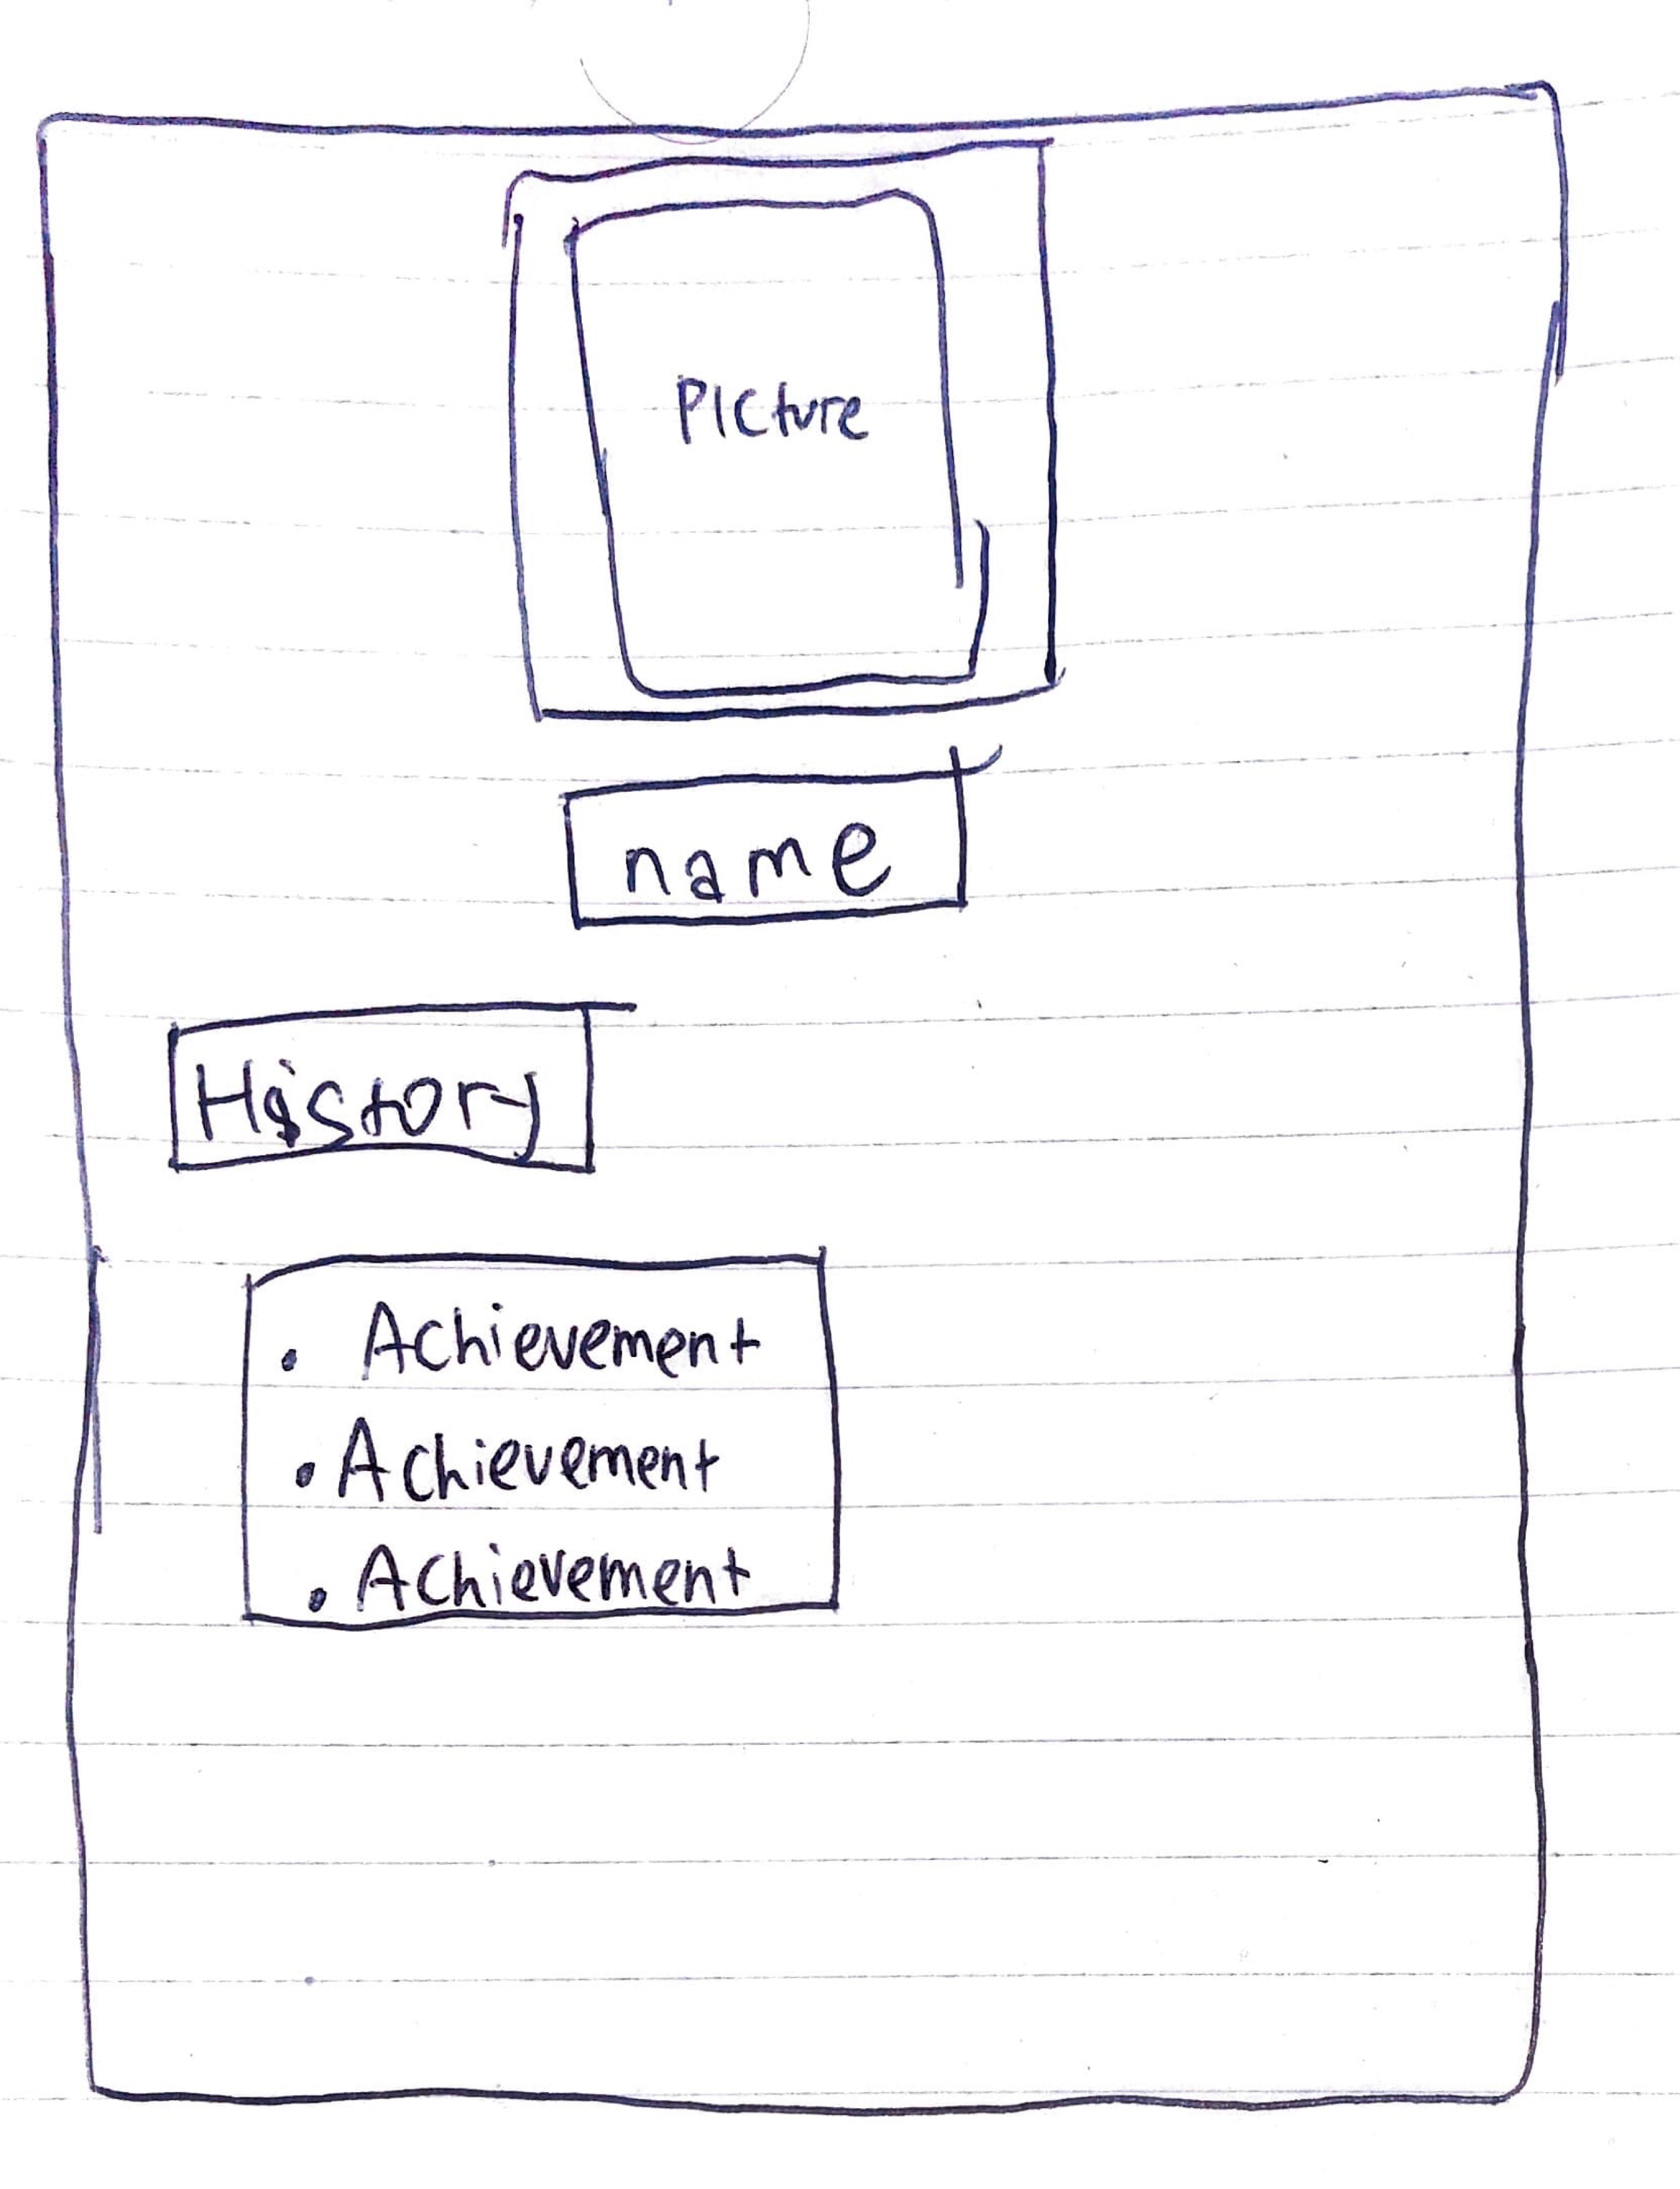 Picture
name
History
• Achievement
• Achievement
• Achievement